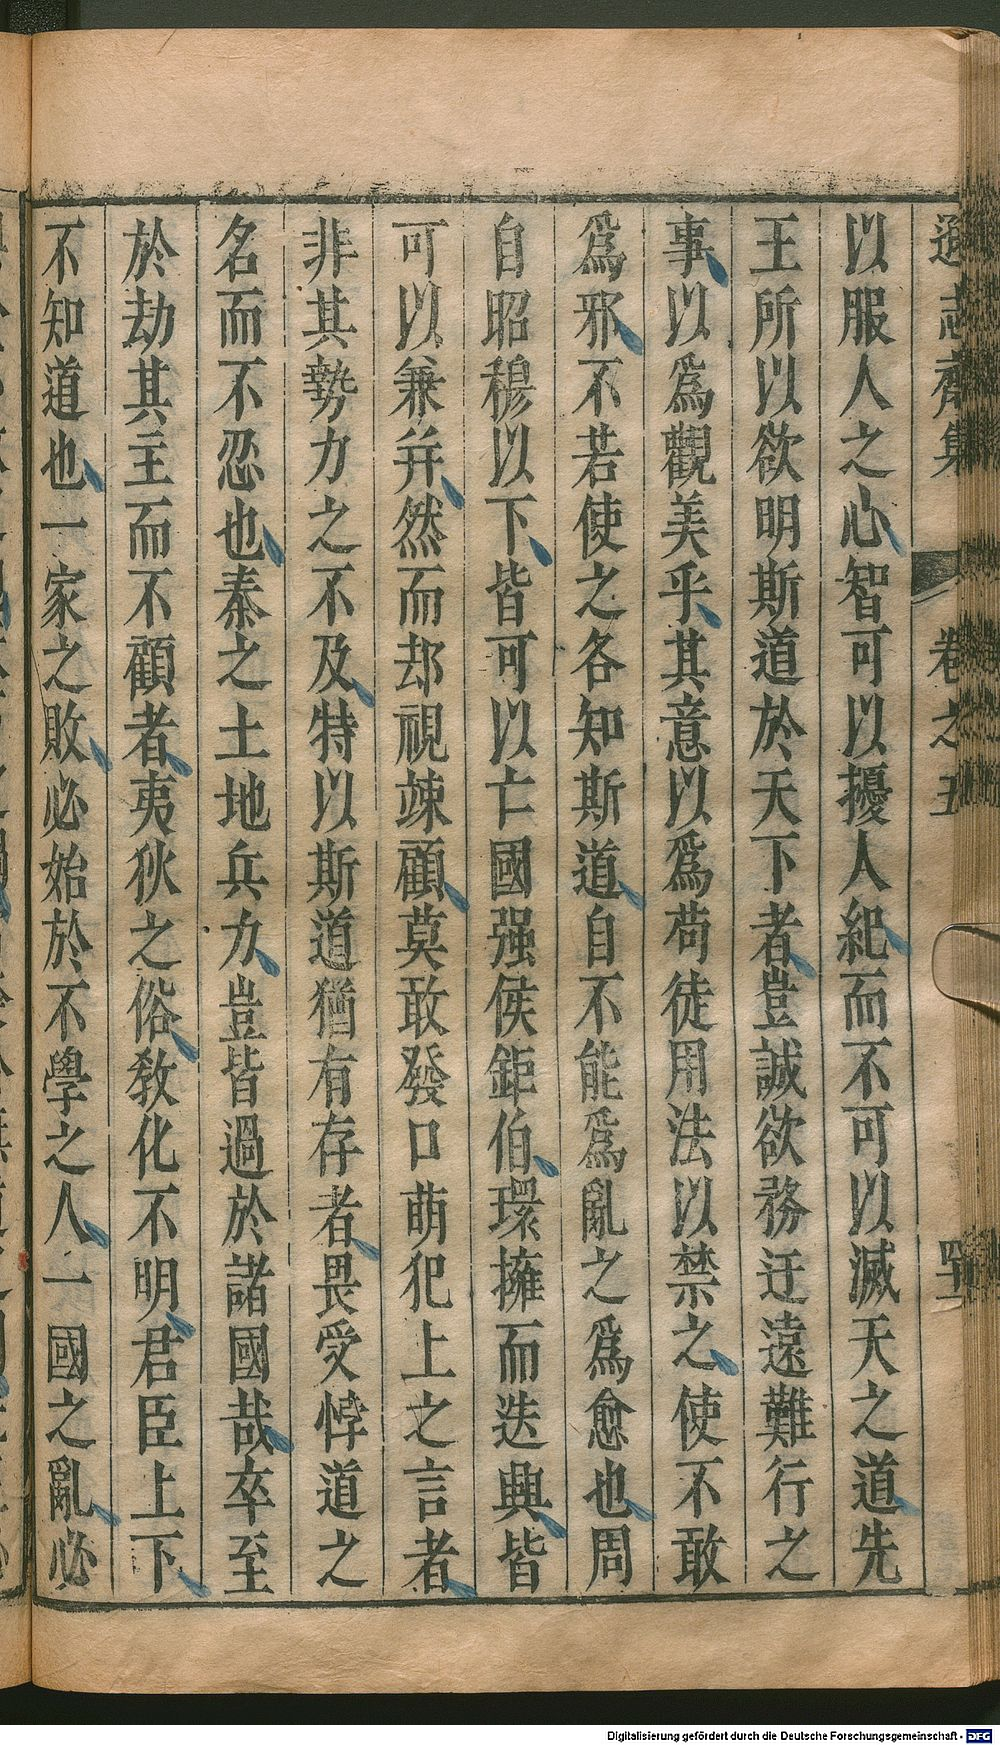 遜志齋集 卷之五 四
以服人之心智可以擾人紀而不可以滅天之道先
王所以欲明斯道於天下者豈誠欲務迂遠難行之
事以爲觀美乎其意以爲苟徒用法以禁之使不敢
爲邪不若使之各知斯道自不能爲亂之爲愈也周
自昭穆以下皆可以亡國强侯鉅伯環擁而迭興皆
可以兼并然而却視竦顧莫敢發口萌犯上之言者
非其勢力之不及特以斯道猶有存者畏受悖道之
名而不忍也秦之土地兵力豈皆過於諸國哉卒至
於劫其主而不顧者夷狄之俗敎化不明君臣上下
不知道也一家之敗必始於不學之人一國之亂必
Digitalisierung gefördert durch die Deutsche Forschungsgemeinschaft - DFG